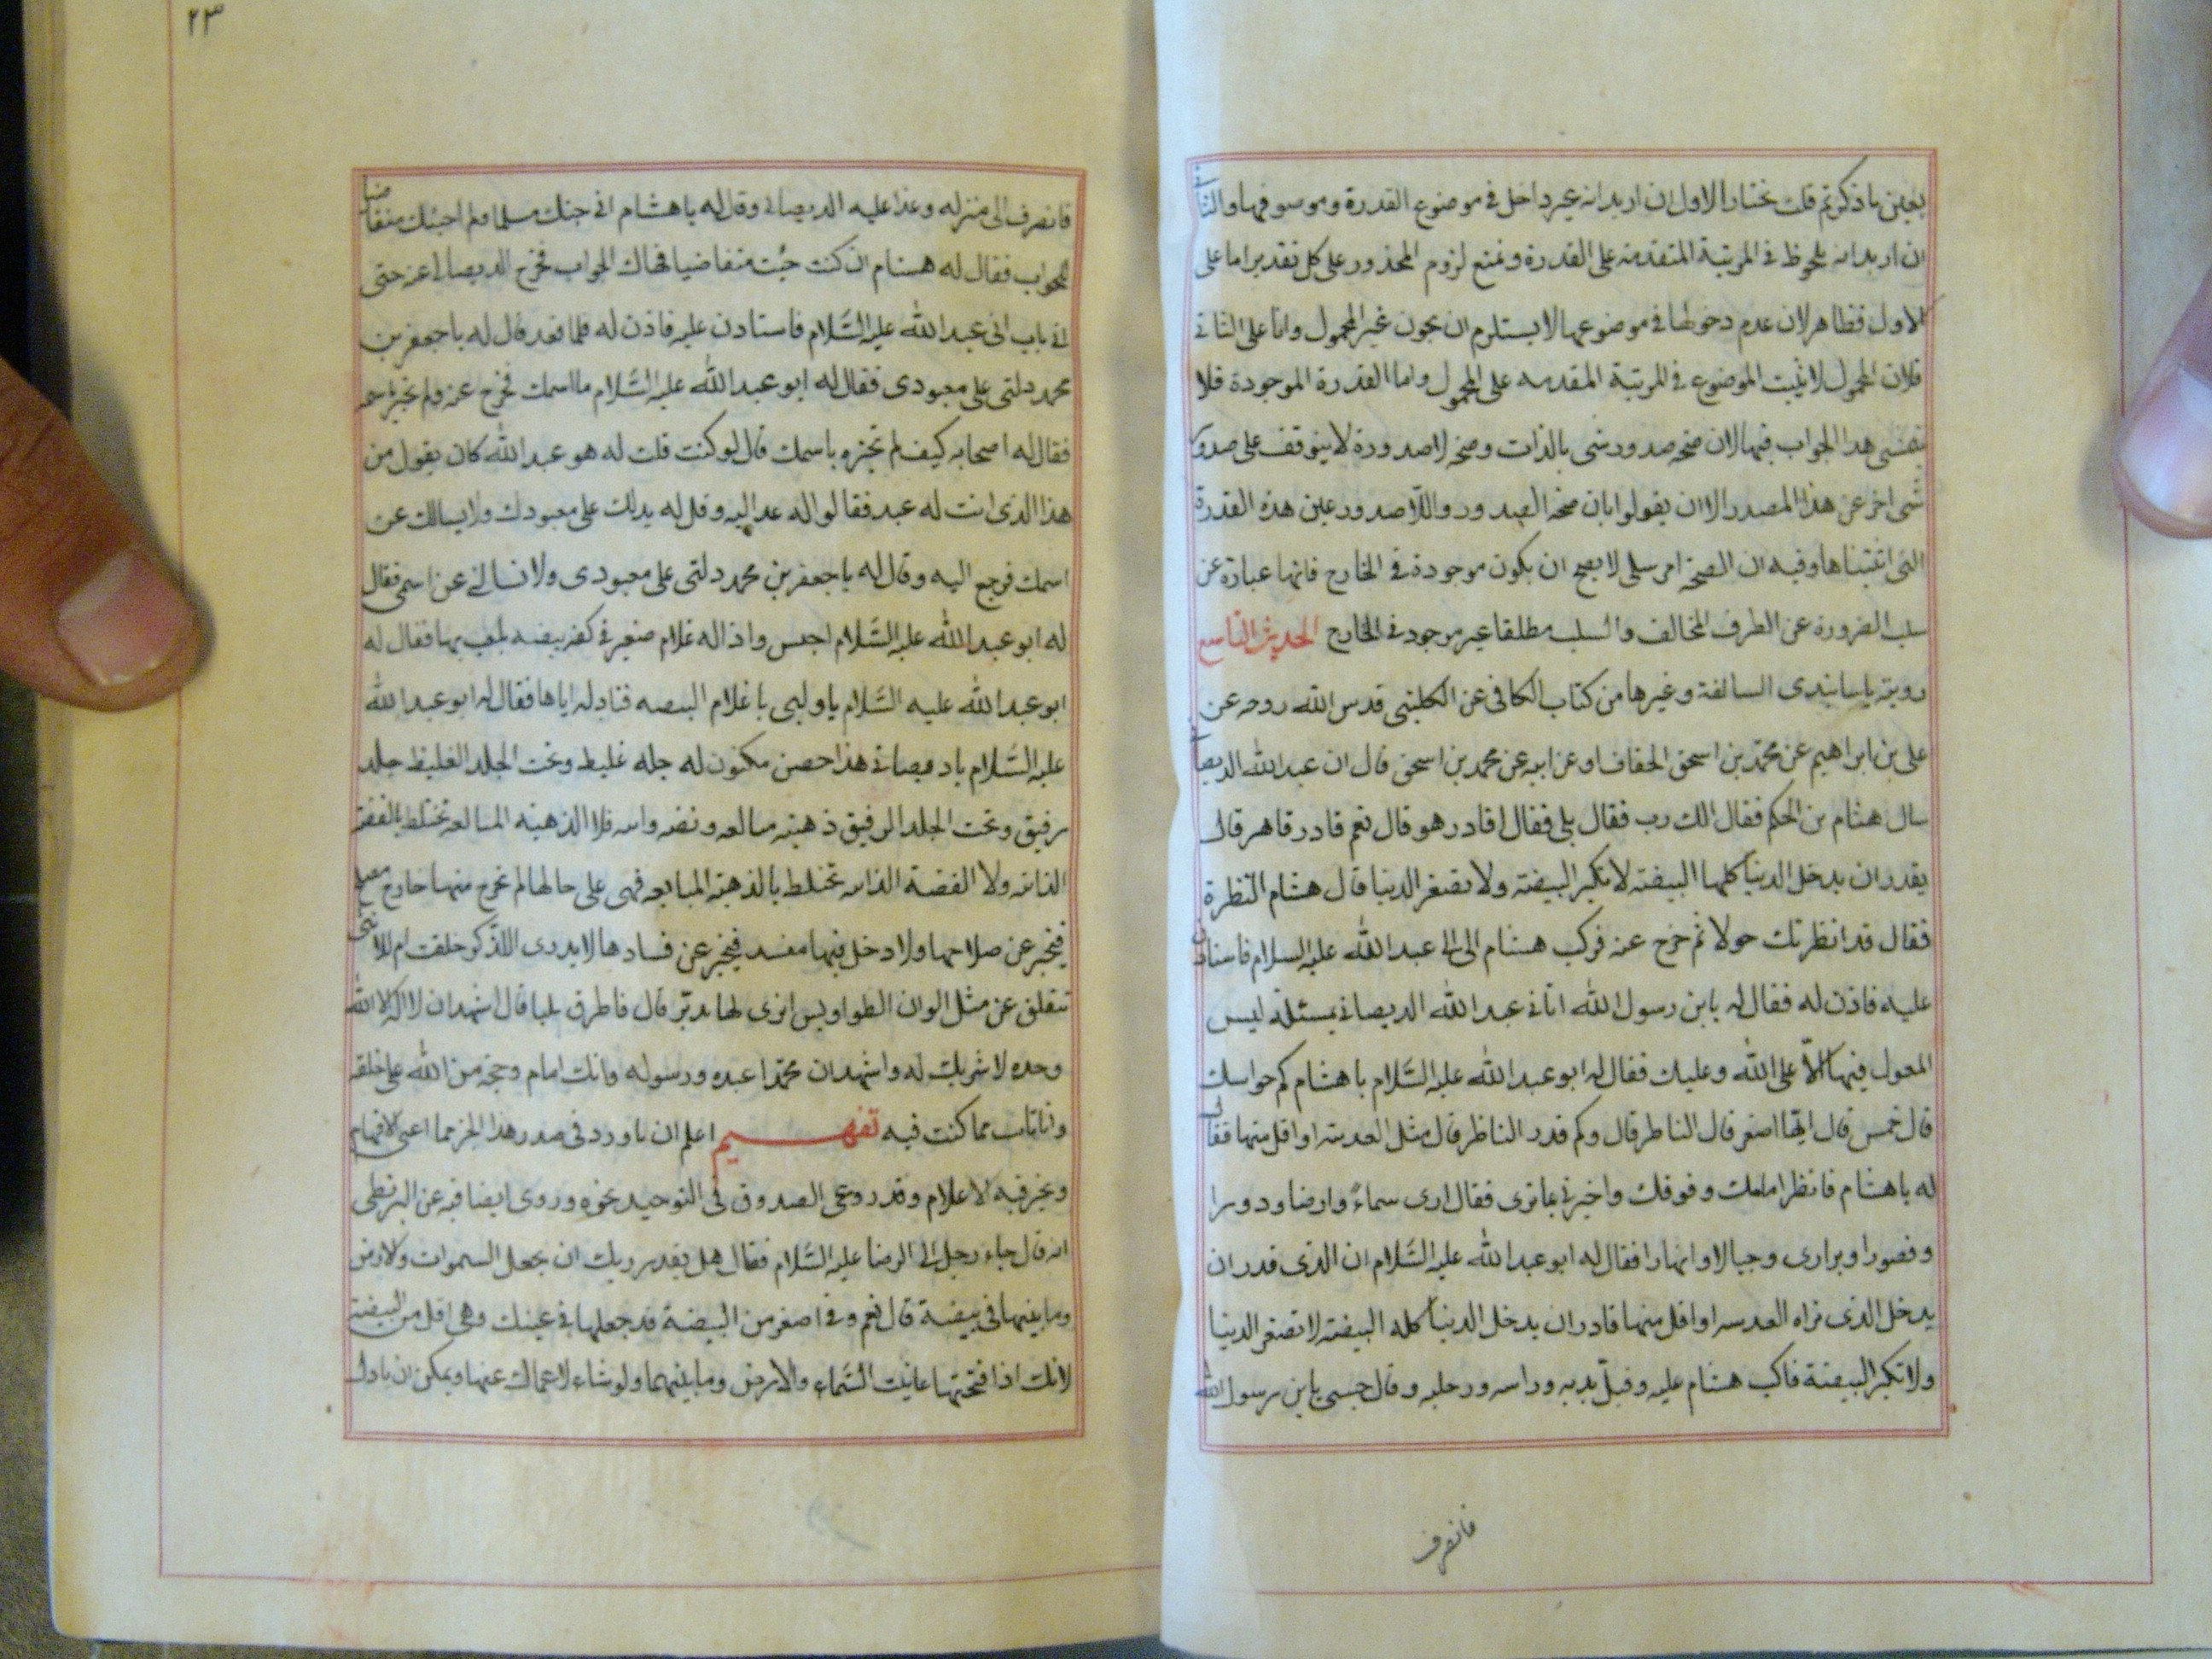 بعين ما ذكرتم قلت نختار الاول ان اريد انه غير داخل فى موضوع القدرة وموسوفها والثا
ان اريد انه ملحوظ فى المرتبة المتقدمة على القدرة ونمنع لزوم المحذور على كل تقدير اما على
الاول فظاهر لان عدم دخولها فى موضوعها لا يستلزم ان يكون غير المحمول واما على الثانى
فلان المحمول لا يثبت الموضوع فى المرتبة المقدمه على المحمول واما القدرة الموجودة فلا
يتمشى هذا الجواب فيها لان صحة صدور شى بالذات وصحة لا صدورة لا يتوقف على صدو
شى اخر عن هذا المصدر الا ان يقولوا بان صحه الصدور واللا صدور عين هذه القدرة
التى اثبتناها وفيه ان الصحة امر سلبى لا يصح ان يكون موجودة فى الخارج فانها عبارة عن
سلب الضرورة عن الطرف المخالف والسلب مطلقا غير موجود فى الخارج الحديث التاسع
رويته باسانيدى السالفة وغيرها من كتاب الكافى عن الكلينى قدس الله روحه عن
على بن ابراهيم عن محمد بن اسحق الخفاف او عن ابيه عن محمد بن اسحق قال ان عبد الله الديصا
سال هشام بن الحكم فقال الك رب فقال بلى فقال اقادر هو قال نعم قادر قاهر قال
يقدر ان يدخل الدنيا كلها البيضة لا تكبر البيضة ولا تصغر الدنيا قال هشام النظرة
فقال قد انظرتك حولا ثم خرج عنه فركب هشام الى ابى عبد الله عليه السلام فاستاذن
عليه فاذن له فقال له يا بن رسول الله اتانى عبد الله الديصانى بمسئلة ليس
المعول فيها الا على الله وعليك فقال له ابو عبد الله عليه السلام يا هشام كم حواسك
قال خمس قال ايها اصغر قال الناظر قال وكم قدر الناظر قال مثل العدسة او اقل منها فقال
له يا هشام فانظر امامك وفوقك واخبرنى بما ترى فقال ارى سماء وارضا ودورا
وقصورا وبرارى وجبالا وانهارا فقال له ابو عبد الله عليه السلام ان الذى قدر ان
يدخل الذى تراه العدسه او اقل منها قادر ان يدخل الدنيا كله البيضة لا تصغر الدنيا
ولا تكبر البيضة فاكب هشام عليه وقبل يديه وراسه ورجليه وقال حسبى يا بن رسول الله
فانصرف
٢٣
فانصرف الى منزله وغدا عليه الديصانى وقال له يا هشام انى جئتك مسلما ولم اجئك متقاضيا
للجواب فقال له هشام ان كنت جئت متقاضيا فهاك الجواب فخرج الديصانى عنه حتى
اتى باب ابى عبد الله عليه السلام فاستاذن عليه فاذن له فلما قعد قال له يا جعفر بن
محمد دلنى على معبودى فقال له ابو عبد الله عليه السلام ما اسمك فخرج عنه ولم يخبره باسمه
فقال له اصحابه كيف لم تخبره باسمك قال لو كنت قلت له هو عبد الله كان يقول من
هذا الذى انت له عبد فقالوا له عد اليه وقل له يدلك على معبودك ولا يسالك عن
اسمك فرجع اليه وقال له يا جعفر بن محمد دلنى على معبودى ولا تسالنى عن اسمى فقال
له ابو عبد الله عليه السلام اجلس واذا له غلام صغير فى كفه بيضه يلعب بها فقال له
ابو عبد الله عليه السلام ناولنى يا غلام البيضه فناوله اياها فقال له ابو عبد الله
عليه السلام يا ديصانى هذا حصن مكنون له جلد غليظ وتحت الجلد الغليظ جلد
رقيق وتحت الجلد الرقيق ذهبة مايعه وفضه ذائبه فلا الذهبه المايعه تختلط بالفضة
الذائبه ولا الفضة الذائبه تختلط بالذهبة المايعه فهى على حالها لم يخرج منها خارج مصلح
فيخبر عن صلاحها ولا دخل فيها مفسد فيخبر عن فسادها لا يدرى للذكر خلقت ام للانثى
تنفلق عن مثل الوان الطواويس اترى لها مدبرا قال فاطرق مليا قال اشهد ان لا اله الا الله
وحده لا شريك له واشهد ان محمدا عبده ورسوله وانك امام وحجة من الله على خلقه
وانا تائب مما كنت فيه تفهيم اعلم ان ما ورد فى صدر هذا الخبر مما اعيى الافهام
وتحير فيه الاعلام وقد روى الصدوق فى التوحيد نحوه وروى ايضا فيه عن البزنطى
انه قال جاء رجل الى الرضا عليه السلام فقال هل يقدر ربك ان يجعل السموات والارض
وما بينهما فى بيضة قال نعم وفى اصغر من البيضة قد جعلها فى عينك وهى اقل من البيضة
لانك اذا فتحتها عاينت السماء والارض وما بينهما ولو شاء لاعماك عنها ويمكن ان ياول